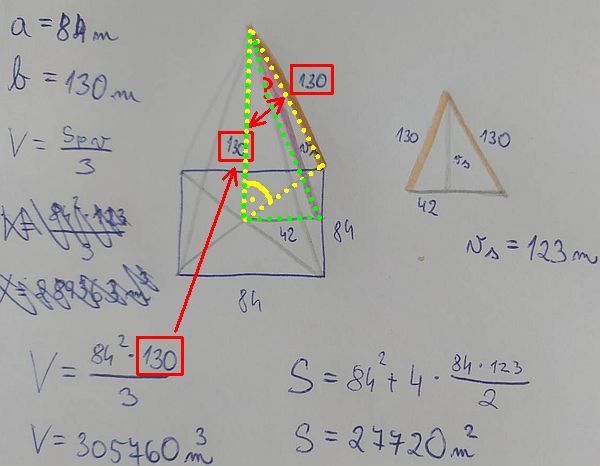 a = 84 m
b = 130 m
V = Spv / 3
130
130
vs
42
84
84
130
130
vs
42
vs = 123 m
V = 84² · 130 / 3
V = 305760 m³
S = 84² + 4 · 84 · 123 / 2
S = 27720 m²